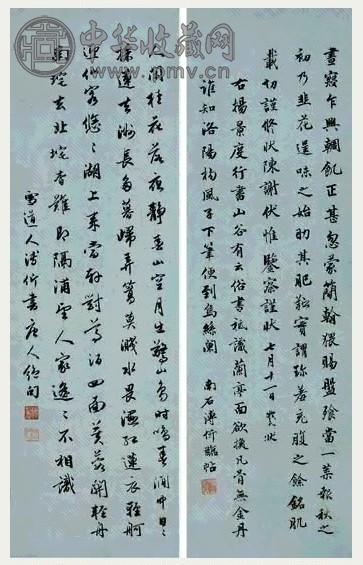 中华收藏网
晝寢乍興輖飢正甚忽蒙簡翰猥賜盤飧當一葉報秋之
初乃韭花逞味之始助其肥羜實謂珍羞充腹之餘銘肌
載切謹修狀陳謝伏惟鑒察謹狀七月十一日狀
右楊景度行書山谷有云俗書祗識蘭亭面欲換凡骨無金丹
誰知洛陽楊風子下筆便到烏絲闌
南石溥忻臨帖
人閒桂花落夜靜春山空月出驚山鳥時鳴春澗中日々
採蓮去洲長多暮歸弄篙莫濺水畏濕紅蓮衣輕舸
迎仙客悠々湖上來當軒對尊酒四面芙蓉開輕舟
南垞去北垞杳難即隔浦望人家遙々不相識
雪道人溥忻書唐人絕句